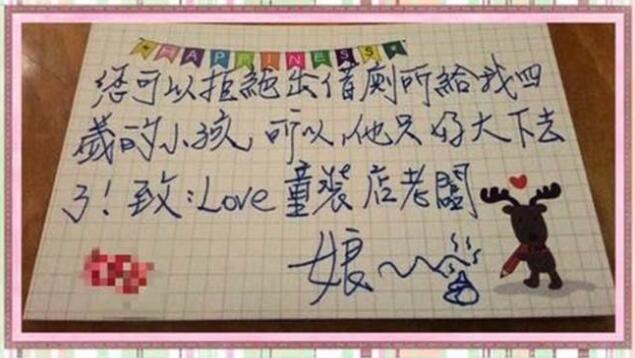 HAPPINESS
您可以拒絕出借廁所給我四
歲的小孩,所以,他只好大下去
了!致:Love 童裝店老闆
娘